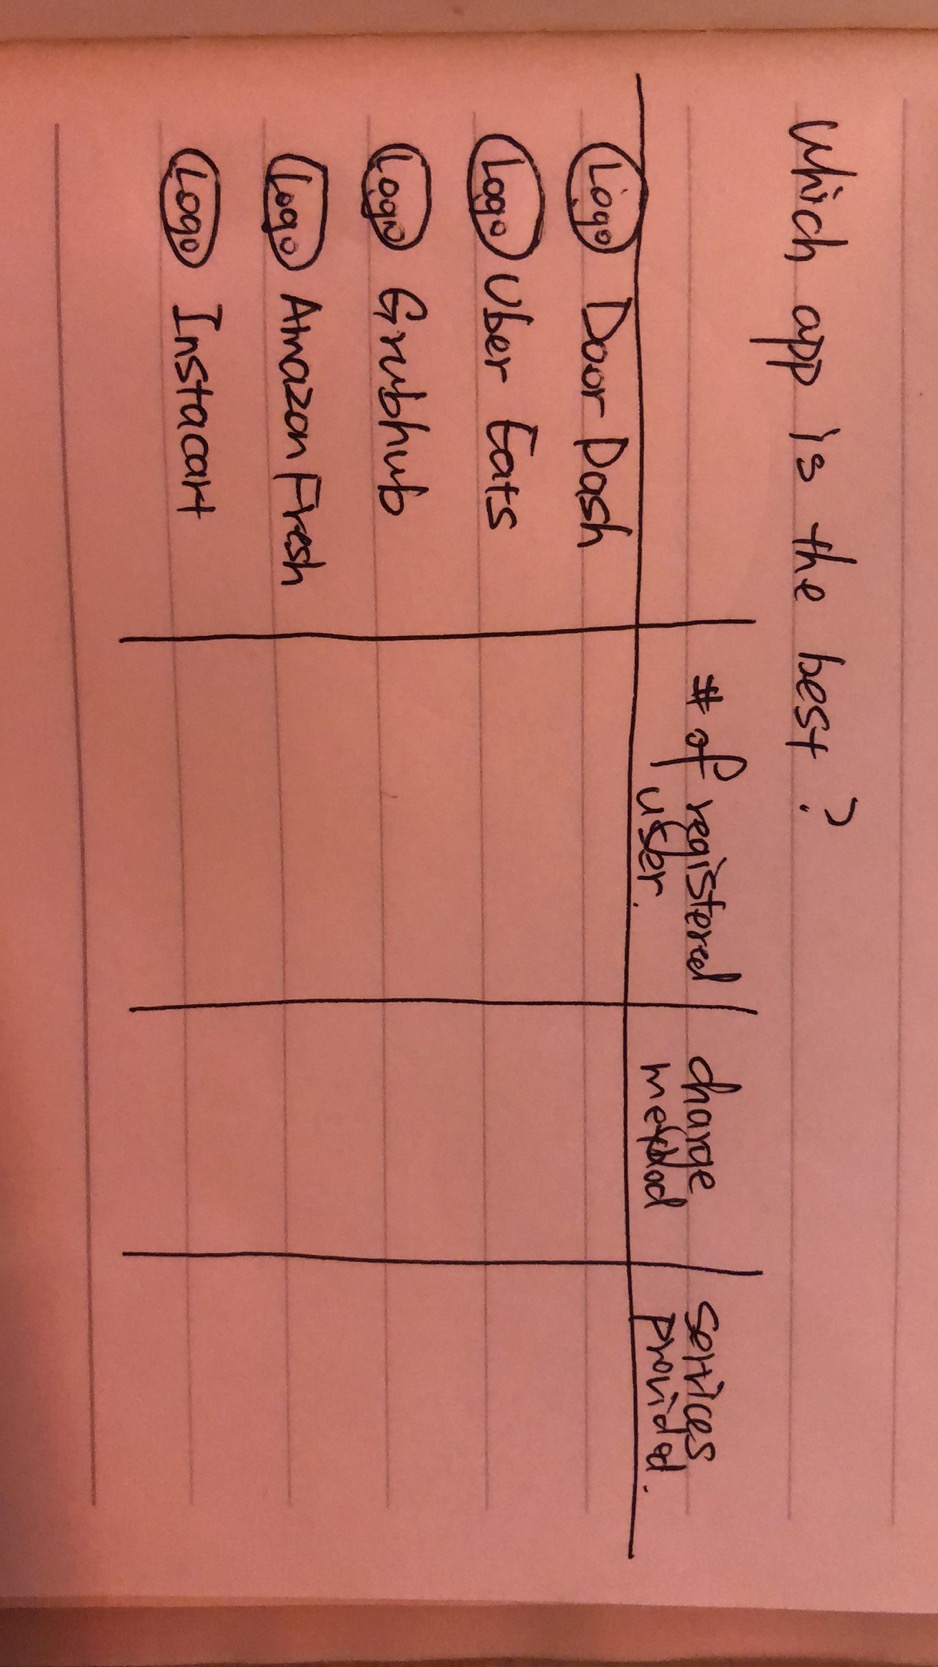 Which app is the best?
# of registered user. charge method services provided.
Logo Door Dash
Logo Uber Eats
Logo Grubhub
Logo Amazon Fresh
Logo Instacart